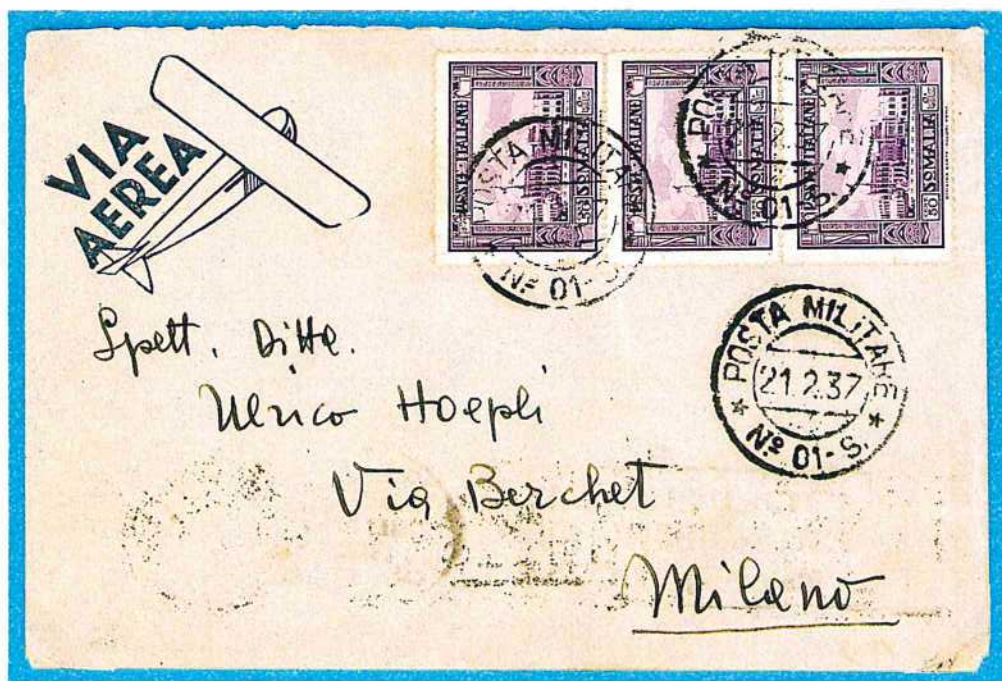 VIA
AEREA
POSTE ITALIANE
50 SOMALIA
POSTE ITALIANE
50 SOMALIA
POSTE ITALIANE
50 SOMALIA
POSTA MILITA
Nº 01-S.
PO
Nº 01-S.
POSTA MILITARE
21.2.37
Nº 01-S.
Spett. Ditta.
Ulrico Hoepli
Via Berchet
Milano